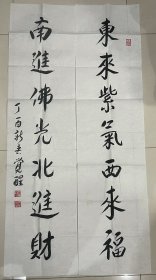 東來紫氣西來福
南進佛光北進財
丁酉新春覺醒